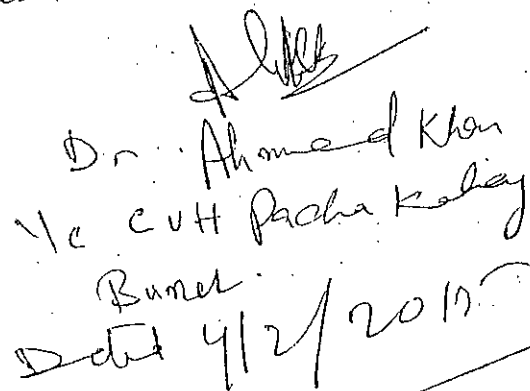 Dr. Ahmad Khan
I/c CVH Pacha Kalay
Buner.
Dated 4/2/2015